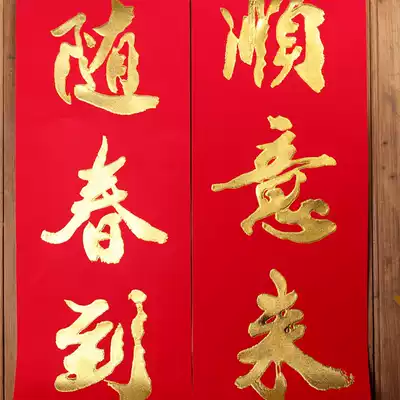 順意来
随春到